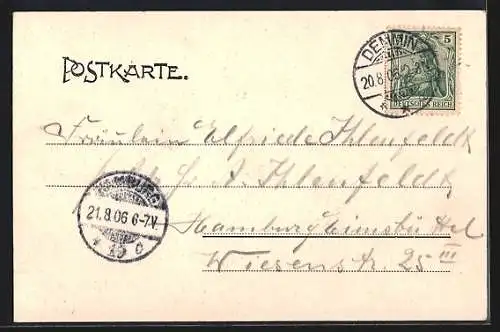 POSTKARTE.
5
DEUTSCHES REICH
DEMMIN
20.8.06
Fräulein Elfriede Ihlenfeldt
A. Ihlenfeldt
Hamburg Eimsbüttel
Wiesenstr. 25 III
HAMBURG
21.8.06 6-7.V.
* 19 c